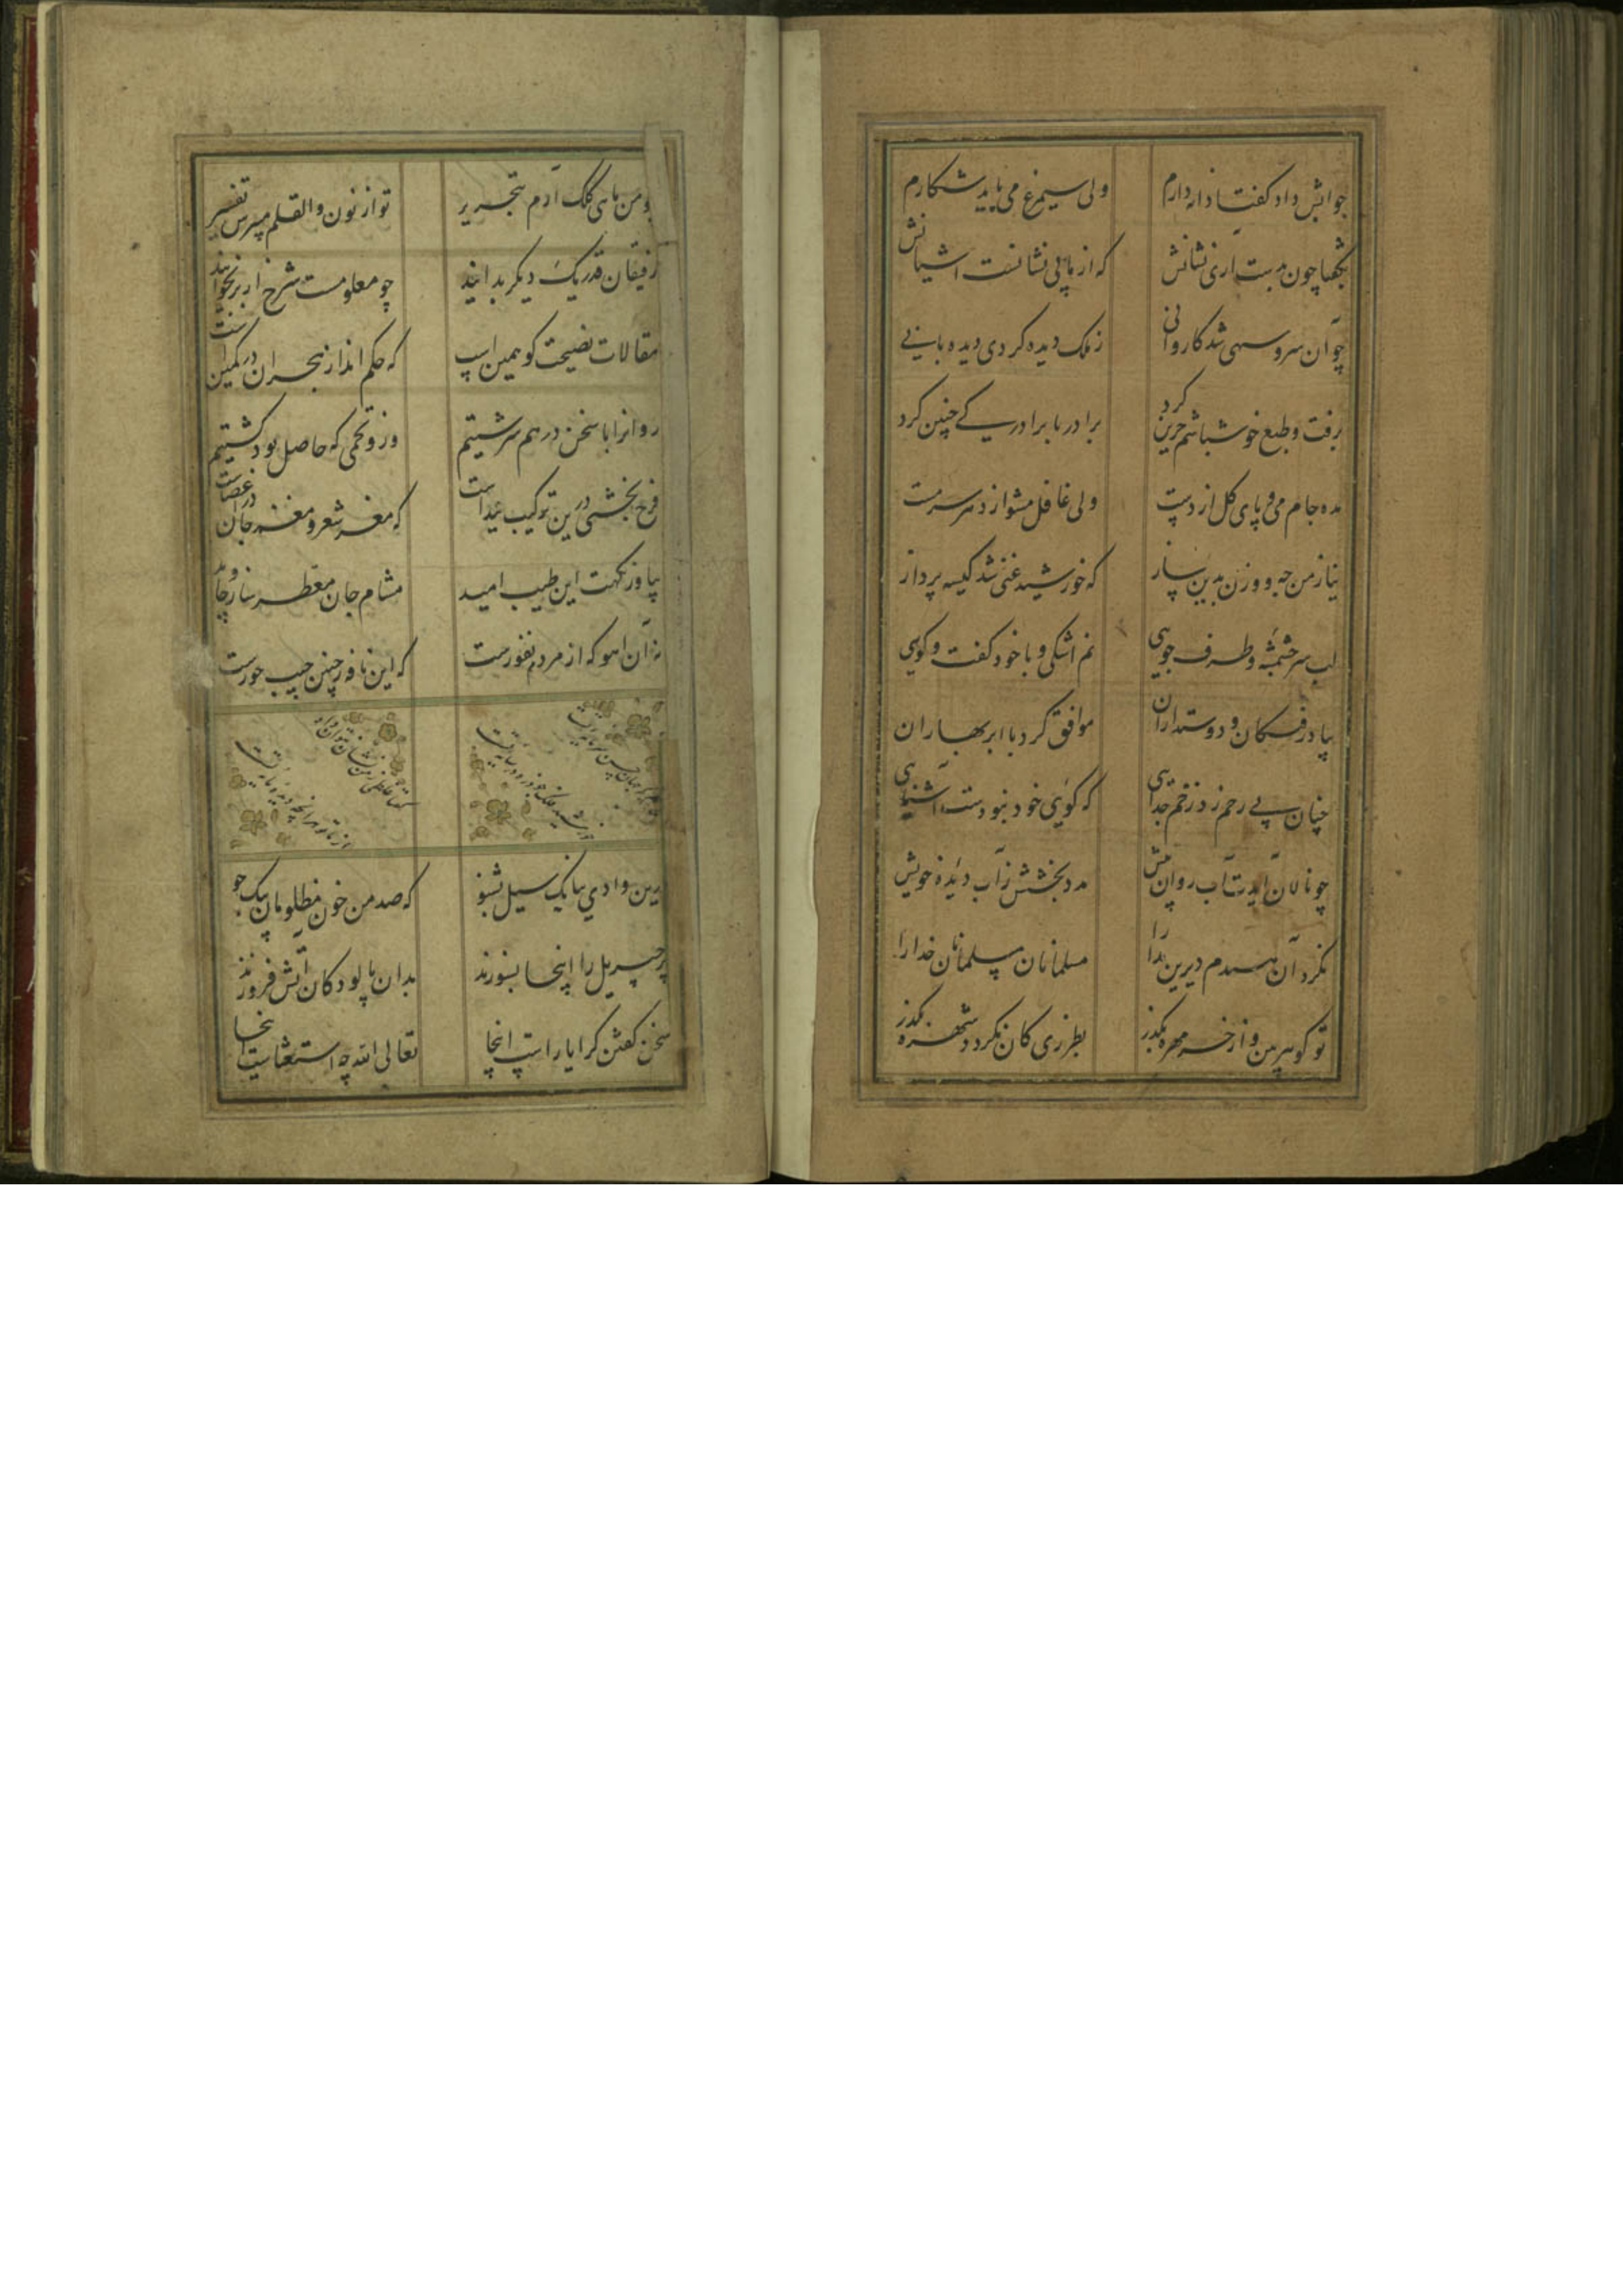 جوابش داد کفتا دانه دارم
ولی سیمرغ می باید شکارم
بکفتا چون بدست اری نشانش
که از ما بی نشانست اشیانش
چو آن سرو سهی شد کاروانی
ز ملک دیده کردی دیده بانی
برفت و طبع خوشباشم حزین کرد
برادر با برادر کے چنین کرد
مده جام می و پای کل از دست
ولی غافل مشو از دهر سرمست
نیاز من چه وزن بدین ساز
که خورشید غنی شد کیسه پرداز
لب سر چشمه و طرف جویی
نم اشکی و با خود کفت و کویی
بیاد رفتکان و دوستداران
موافق کرد با ابر بهاران
چنان بی رحم زد زخم جدایی
که کویی خود نبودست آشنایی
چو نالان آیدت آب روان پیش
مدد بخشش ز آب دیده خویش
نکرد آن همدم دیرین مدارا
مسلمانان مسلمانان خدارا
تو کوهر بین و از خر مهره بکذر
بطرزی کان نکردد شهره بکذر
چو من ماهی کلک آرم بتحریر
تو از نون والقلم میپرس تفسیر
رفیقان قدر یک دیکر بدانید
چو معلومست شرح از بر بخوانید
مقالات نصیحت کو همین است
که حکم انداز هجران در کمین است
روانرا با سخن در هم سرشتیم
وزو تخمی که حاصل بود کشتیم
فرح بخشی درین ترکیب پیداست
که مغز شعر و مغز جان
بیا وز نکهت این طیب امید
مشام جان معطر ساز جاوید
نه آن اهو که از مردم نفورست
که این نافه ز چین جیب حورست
درین وادی ببانک سیل بشنو
که صد من خون مظلومان بیک جو
پر جبریل را اینجا بسوزند
بدان تا کودکان آتش فروزند
سخن کفتن کرا یاراست اینجا
تعالی الله چه استغناست اینجا